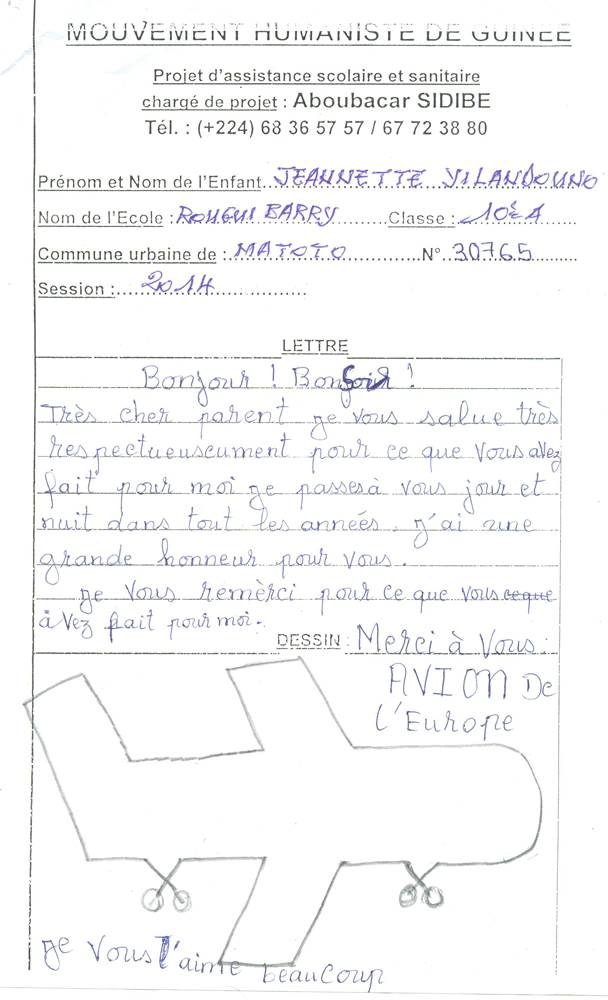 MOUVEMENT HUMANISTE DE GUINEE
Projet d'assistance scolaire et sanitaire
chargé de projet : Aboubacar SIDIBE
Tél. : (+224) 68 36 57 57 / 67 72 38 80
Prénom et Nom de l'Enfant..JEANNETTE YILANDOUNO
Nom de l'Ecole : ROUGUI BARRY Classe : 10è A
Commune urbaine de : MATOTO N° 30765
Session : 2014
LETTRE
Bonjour ! Bonsoir !
Très cher parent je vous salue très
respectueuscument pour ce que vous avez
fait pour moi je passes à vous jour et
nuit dans tout les années. j'ai une
grande honneur pour vous.
je vous remèrci pour ce que vous ceque
àvez fait pour moi.
DESSIN : Merci à Vous.
AVION De
l'Europe
je vous l'aime beaucoup